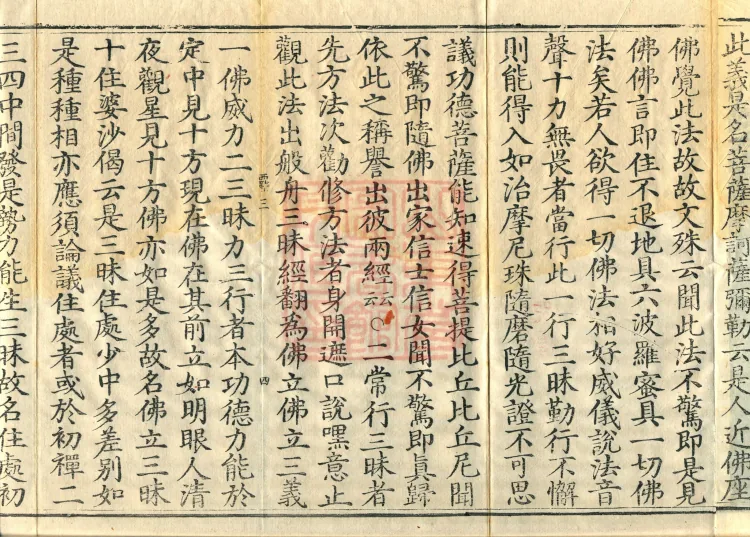 此義是名菩薩摩訶薩彌勒云是人近佛座
佛覺此法故故文殊云聞此法不驚即是見
佛佛言即住不退地具六波羅蜜具一切佛
法矣若人欲得一切佛法相好威儀說法音
聲十力無畏者當行此一行三昧勤行不懈
則能得入如治摩尼珠隨磨隨光證不可思
議功德菩薩能知速得菩提比丘比丘尼聞
不驚即隨佛出家信士信女聞不驚即真歸
依此之稱譽出彼兩經云○二常行三昧者
先方法次勸修方法者身開遮口說嘿意止
觀此法出般舟三昧經翻為佛立佛立三義
覇三
四
一佛威力二三昧力三行者本功德力能於
定中見十方現在佛在其前立如明眼人清
夜觀星見十方佛亦如是多故名佛立三昧
十住婆沙偈云是三昧住處少中多差別如
是種種相亦應須論議住處者或於初禪二
三四中間發是勢力能生三昧故名住處初